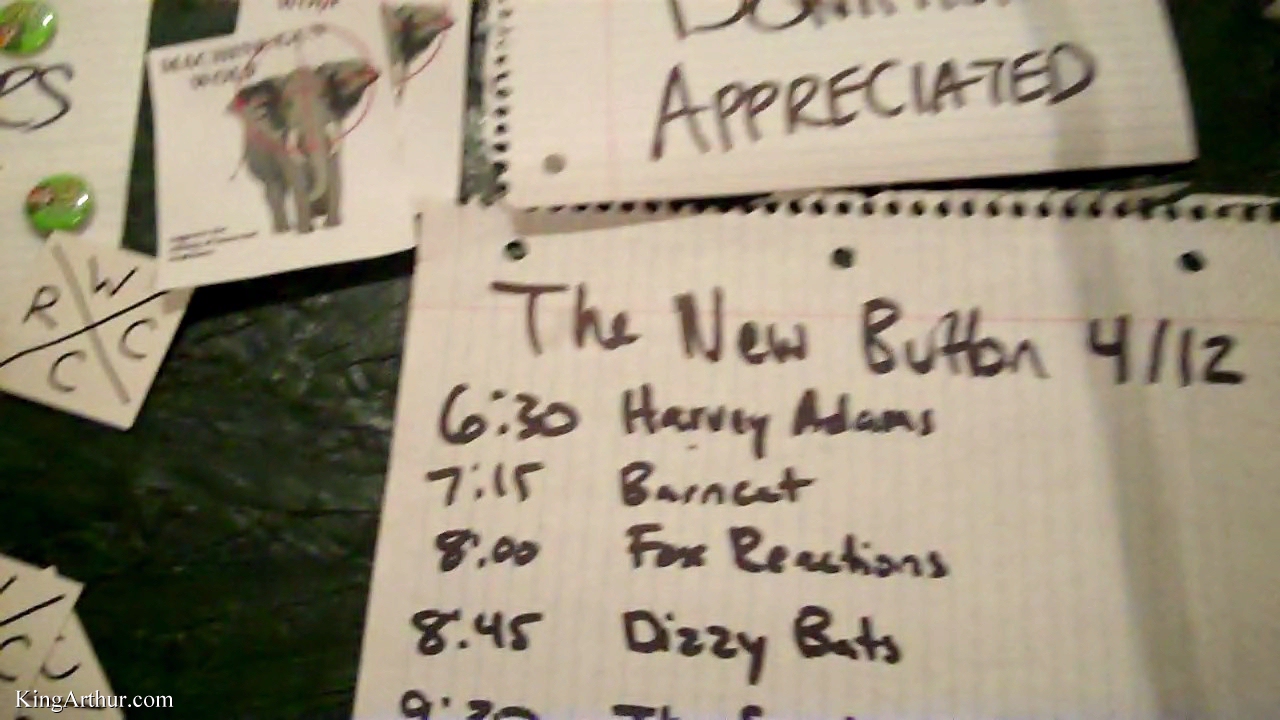 APPRECIATED
The New Button 4/12
6:30 Harvey Adams
7:15 Barncat
8:00 Fox Reactions
8:45 Dizzy Bats
R W
C C
KingArthur.com